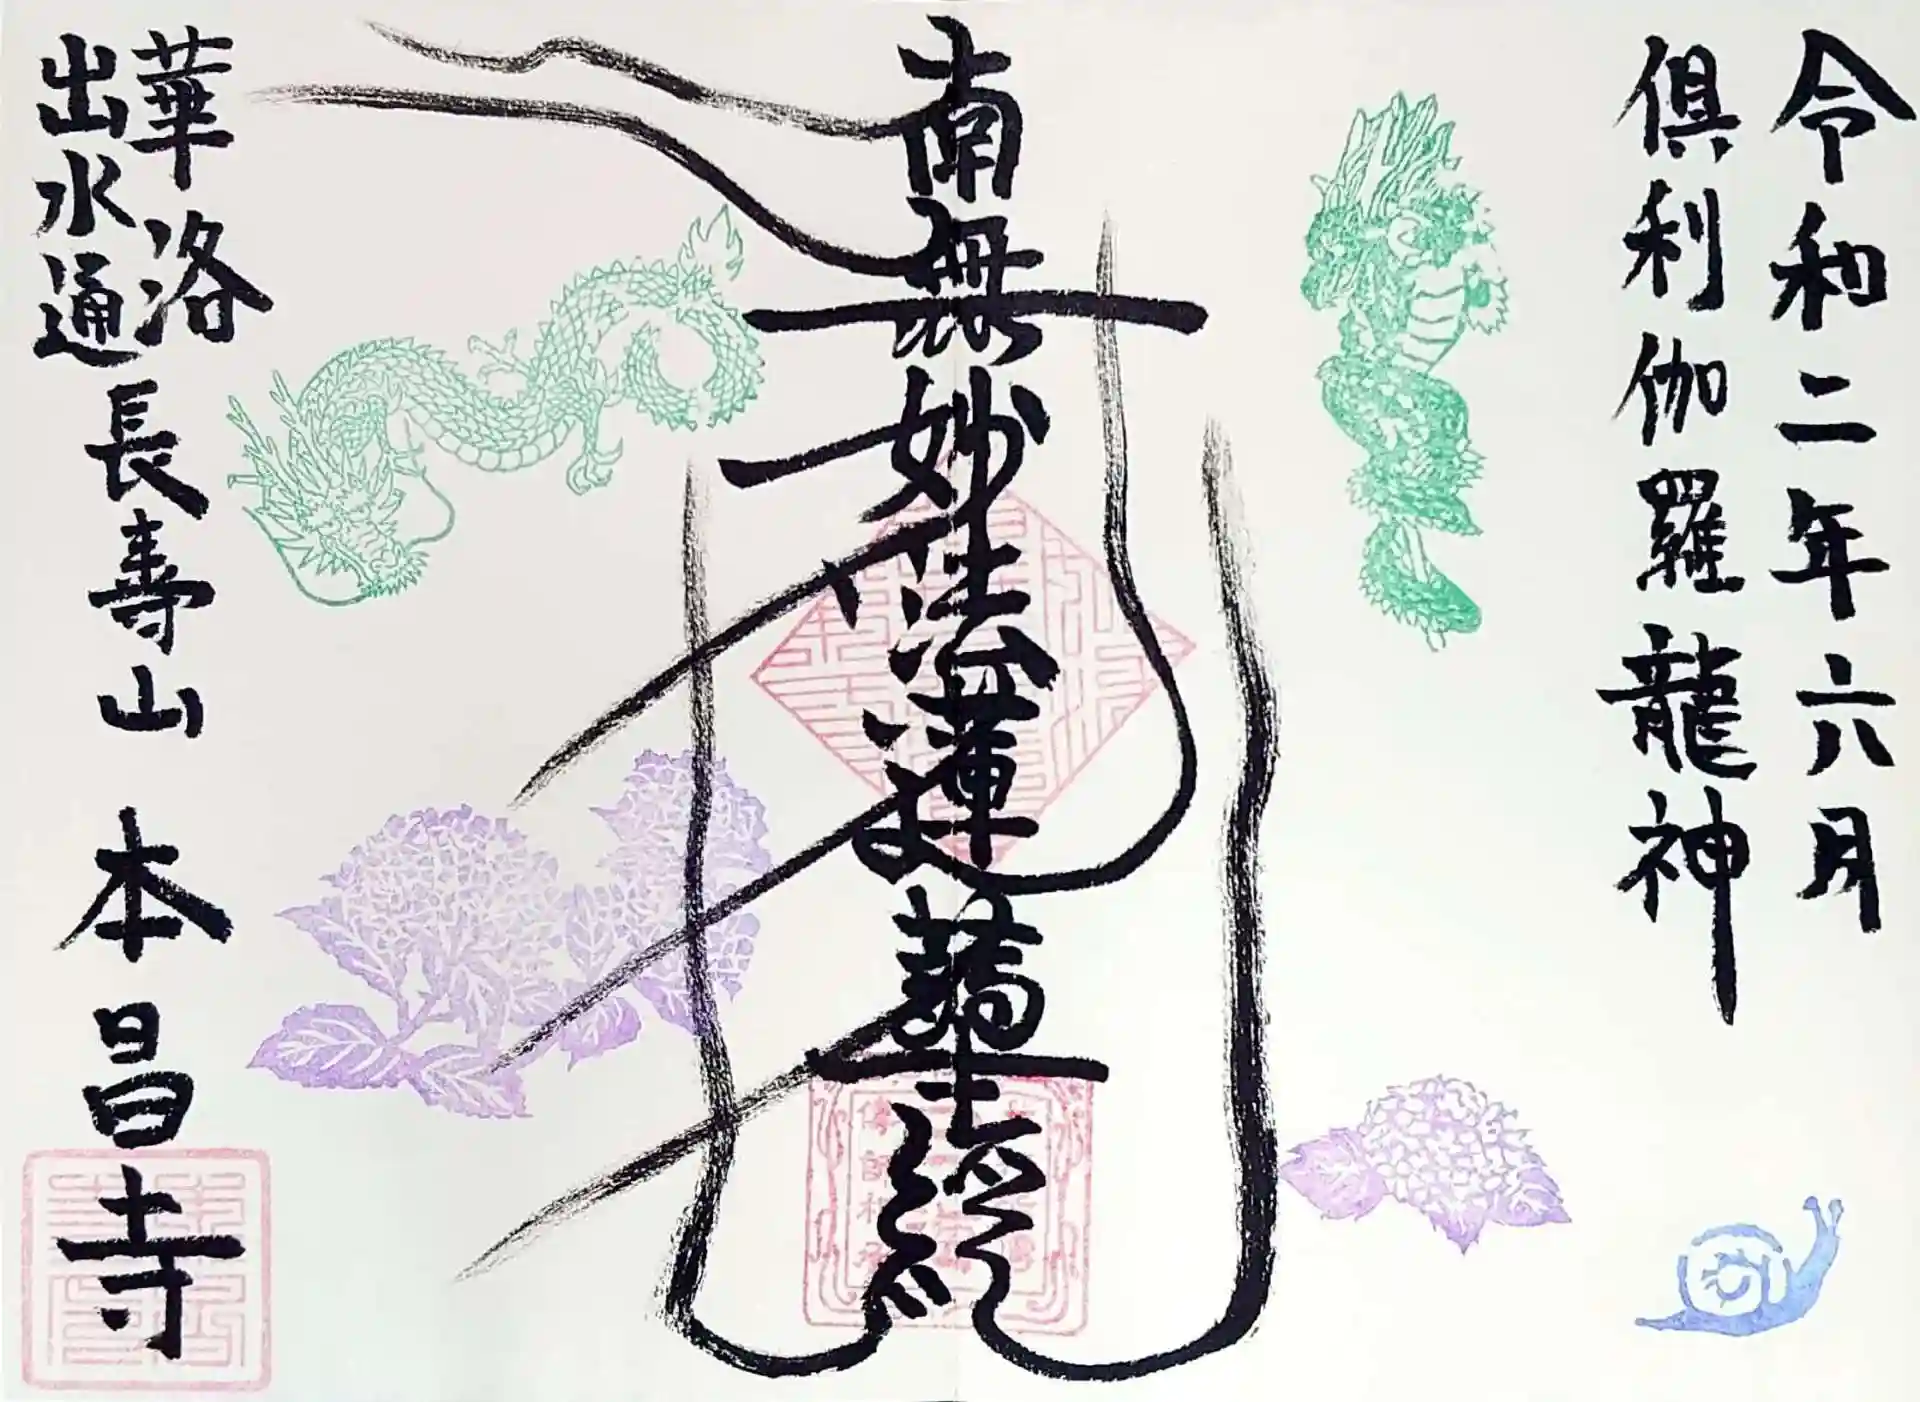 令和二年六月
倶利伽羅龍神
南無妙法蓮華経
華洛
出水通
長壽山
本昌寺